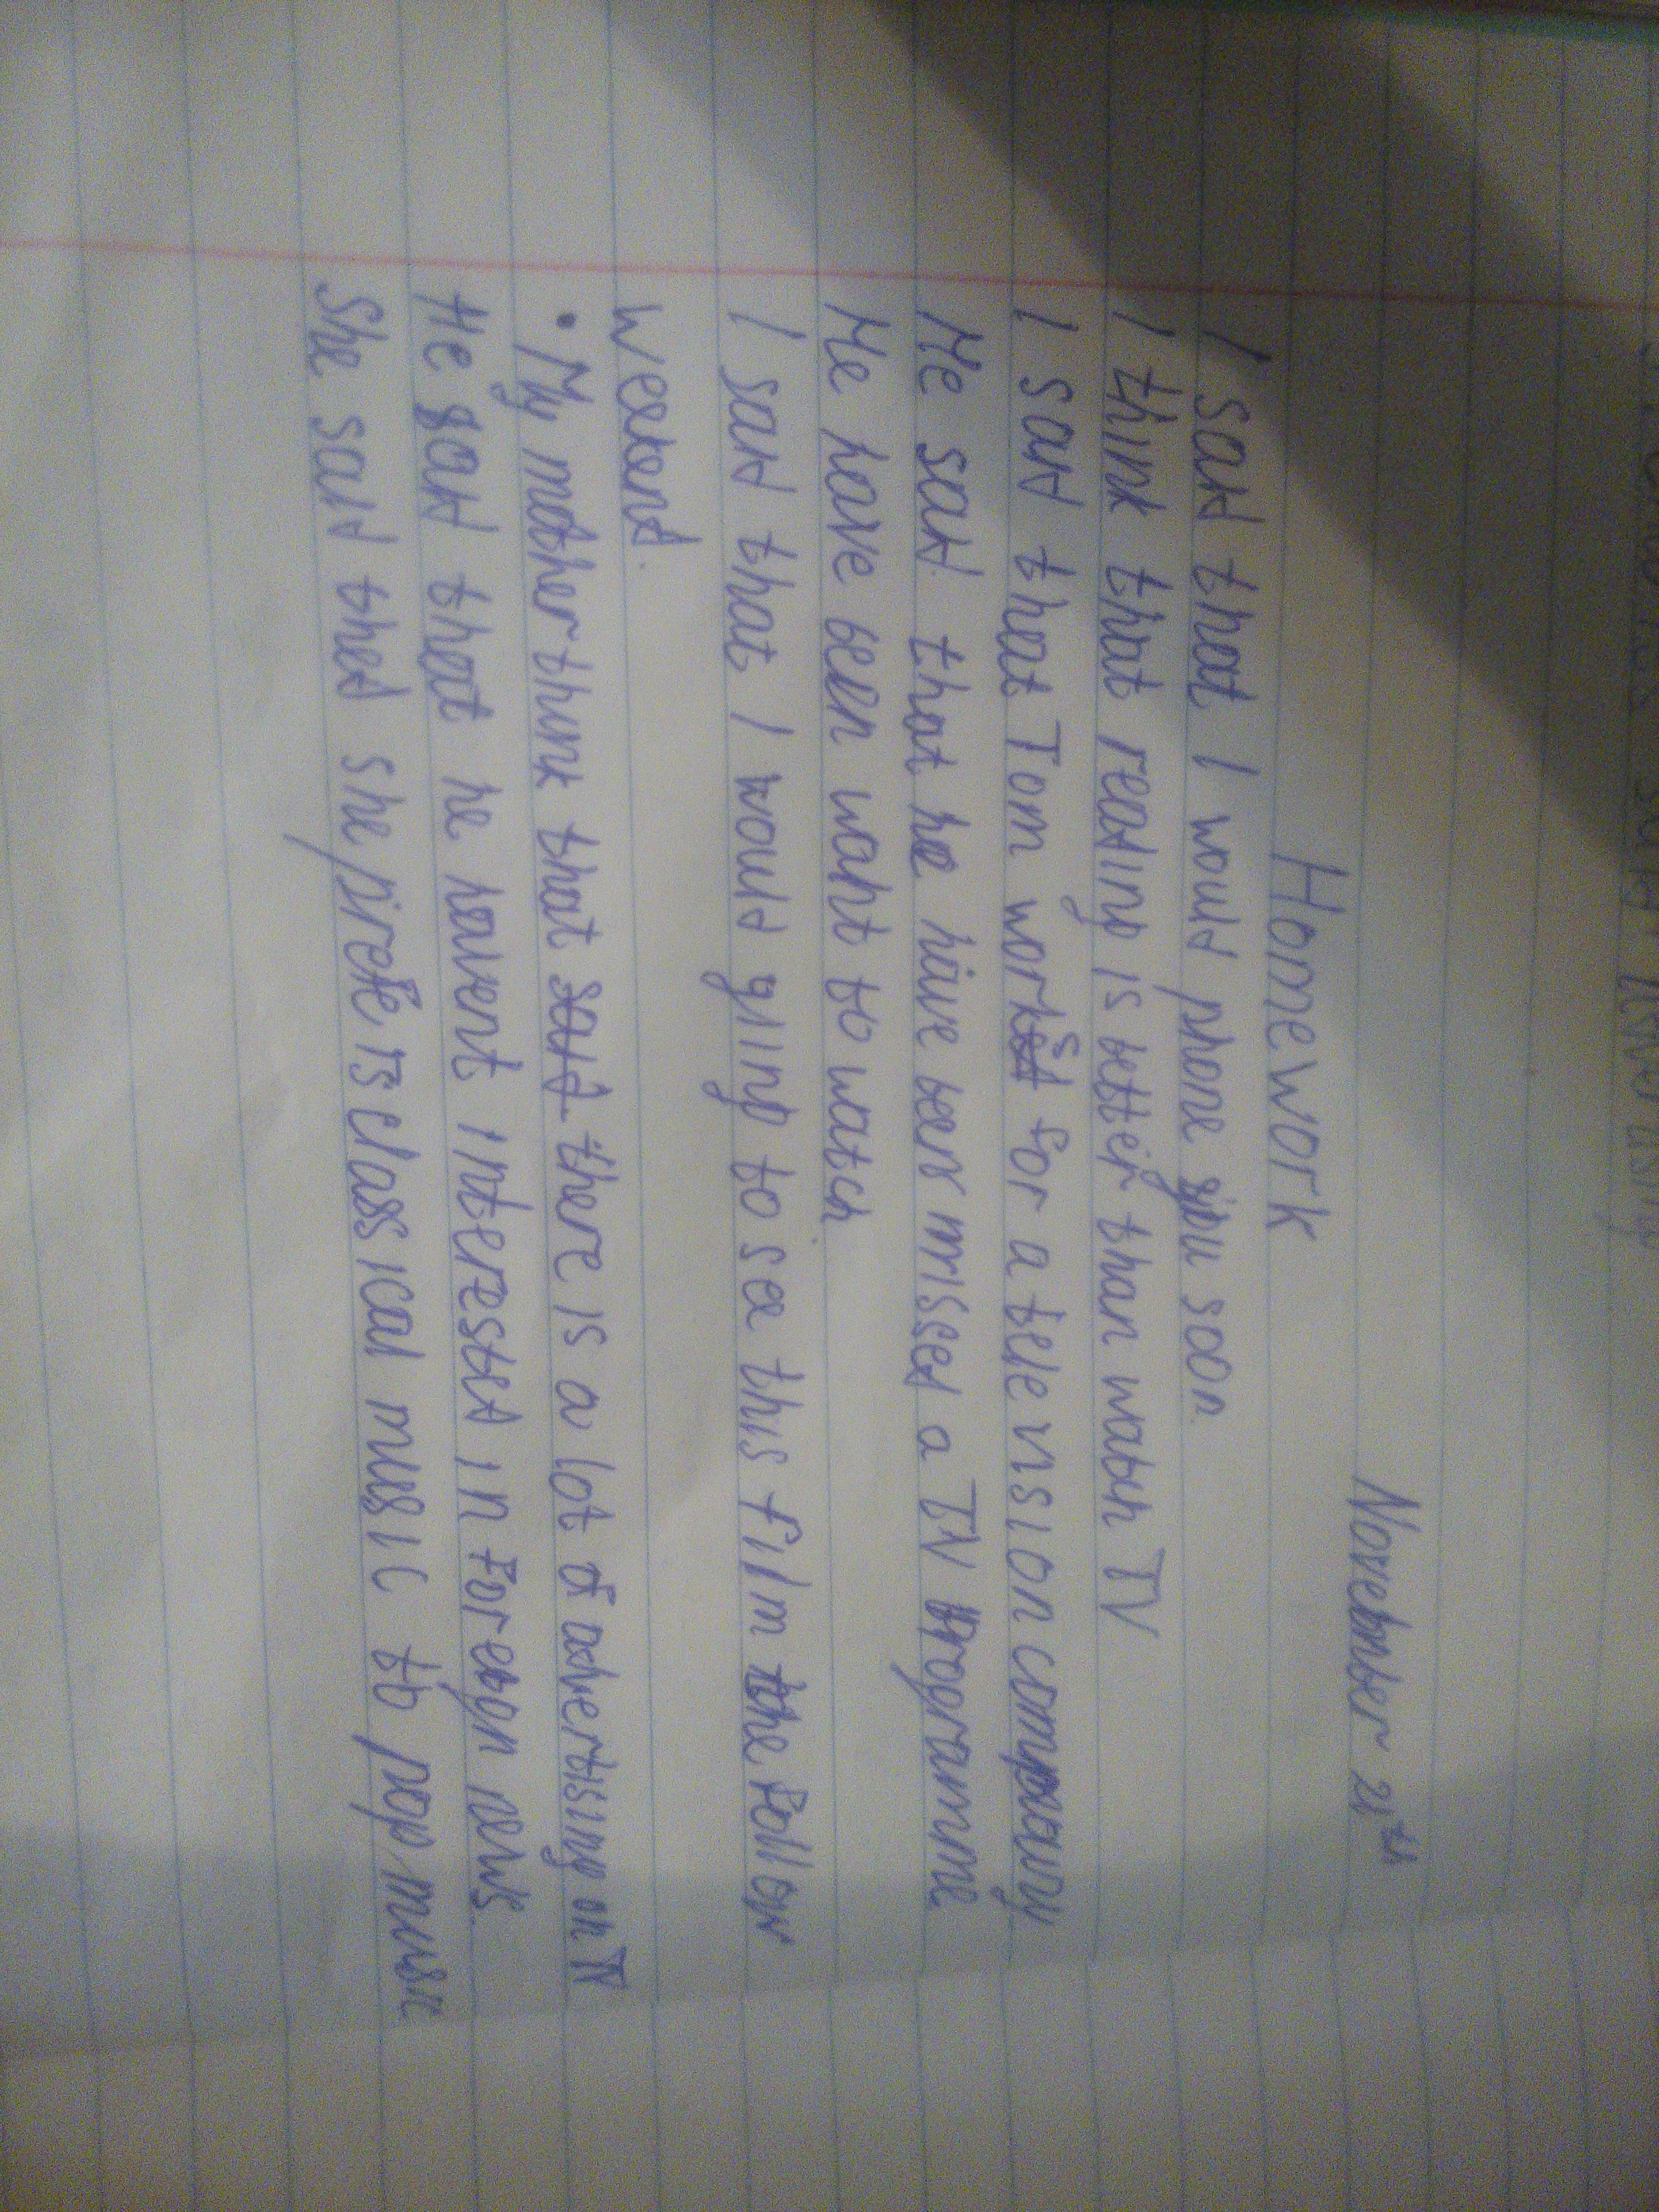 November 21th
Homework
I said that I would phone you soon.
I think that reading is better than watch TV
I said that Tom works for a television company
He said that he have been missed a TV programme
He have been want to watch.
I said that I would going to see this film the follow
weekend.
• My mother think that said there is a lot of advertising on TV
He said that he havent interested in foreign news.
She said that she prefe is classical music to pop music